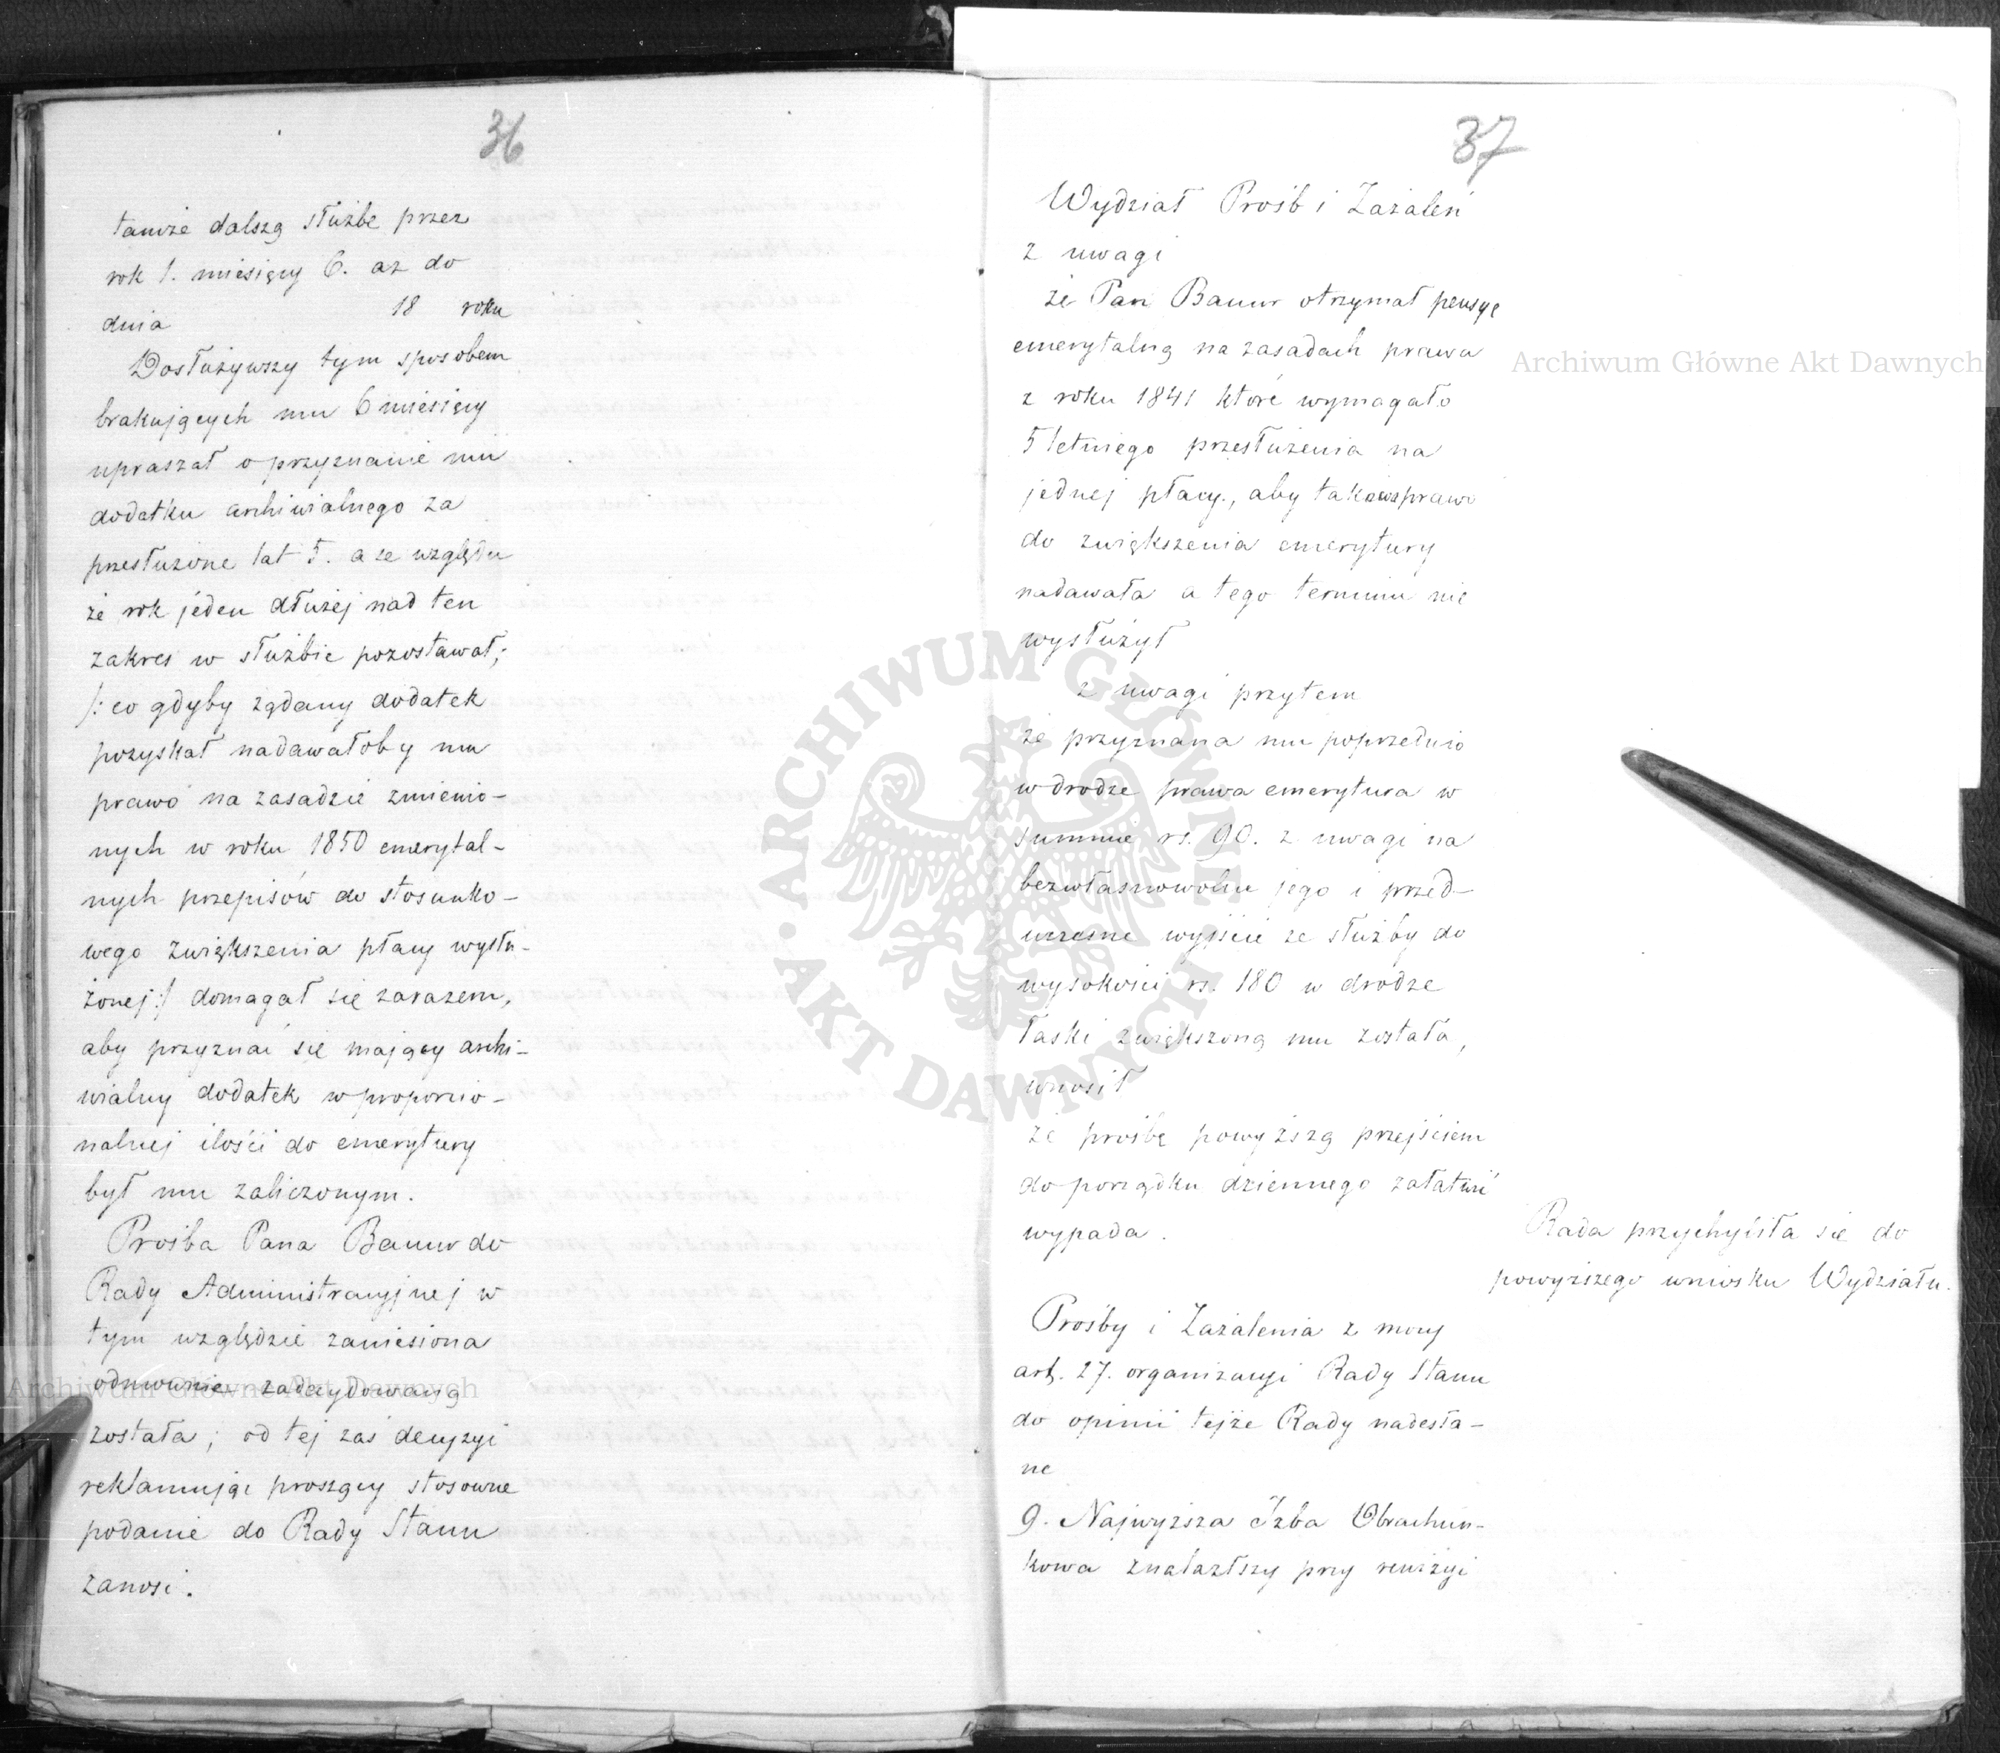 36
tamże dalszą służbę przez
rok 1. miesięcy 6. aż do
dnia 18 roku
Dosłużywszy tym sposobem
brakujących mu 6 miesięcy
upraszał o przyznanie mu
dodatku archiwialnego za
przesłużone lat 5. a ze względu
że rok jeden dłużej nad ten
zakres w służbie pozostawał;
/: co gdyby żądany dodatek
pozyskał nadawałoby mu
prawo na zasadzie zmienio-
nych w roku 1850 emerytal-
nych przepisów do stosunko-
wego zwiększenia płacy wysłu-
żonej :/ domagał się zarazem,
aby przyznać się mający archi-
wialny dodatek w proporcio-
nalnej ilości do emerytury
był mu zaliczonym.
Prośba Pana Bauur do
Rady Administracyjnej w
tym względzie zaniesiona
odmownie zadecydowaną
została; od tej zaś decyzyi
reklamując proszący stosowne
podanie do Rady Stanu
zanosi.
37
Wydział Próśb i Zażaleń
z uwagi
że Pan Bauur otrzymał pensyę
emerytalną na zasadach prawa
z roku 1841 które wymagało
5 letniego przesłużenia na
jednej płacy, aby takowa prawo
do zwiększenia emerytury
nadawała a tego terminu nie
wysłużył
z uwagi przytem
że przyznana mu poprzednio
w drodze prawa emerytura w
summie rs. 90. z uwagi na
bezwłasnowolne jego i przed-
wczesne wyjście ze służby do
wysokości rs. 180 w drodze
łaski zwiększoną mu została,
wnosił
że prośbę powyższą przejściem
do porządku dziennego załatwić
wypada.
Rada przychyliła się do
powyższego wniosku Wydziału.
Prośby i Zażalenia z mocy
art. 27. organizacyi Rady Stanu
do opinii tejże Rady nadesła-
ne
9. Najwyższa Izba Obrachun-
kowa znalazłszy przy rewizyi
Archiwum Główne Akt Dawnych
Archiwum Główne Akt Dawnych
ARCHIWUM GŁÓWNE AKT DAWNYCH